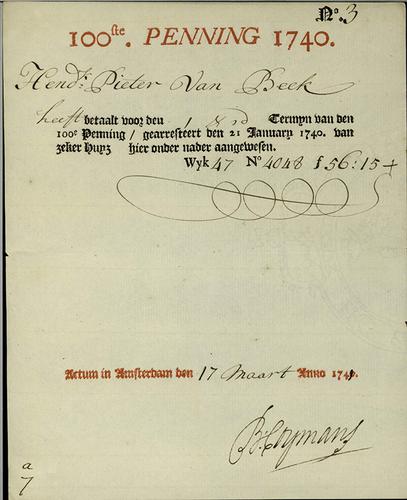 No. 3
100ste. PENNING 1740.
Hendk. Pieter Van Beek
heeft betaalt voor den 1/8 rd Termyn van den
100e Penning / gearresteert den 21 January 1740. van
zeker Huyz hier onder nader aangewesen.
Wyk 47 No 4048 f 56:15
Actum in Amsterdam den 17 Maart Anno 174
a
7